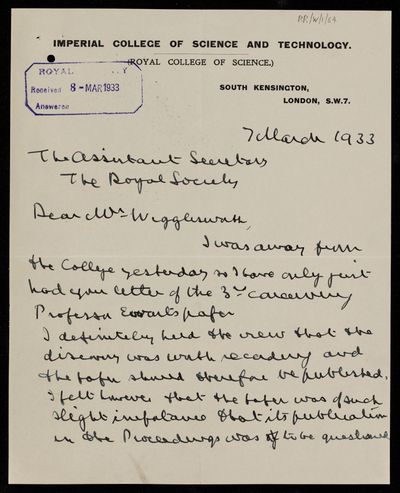 RR/W/1/64
IMPERIAL COLLEGE OF SCIENCE AND TECHNOLOGY.
(ROYAL COLLEGE OF SCIENCE.)
ROYAL
Received 8-MAR 1933
Answered
SOUTH KENSINGTON,
LONDON, S.W.7.
7 March 1933
The Assistant Secretary
The Royal Society
Dear Mr Wigglesworth,
I was away from
the College yesterday so I have only just
had your letter of the 3rd concerning
Professor Ewart's paper
I definitely held the view that the
discovery was worth recording and
the paper should therefore be published.
I felt however that the paper was of such
slight importance that its publication
in the Proceedings was to be questioned